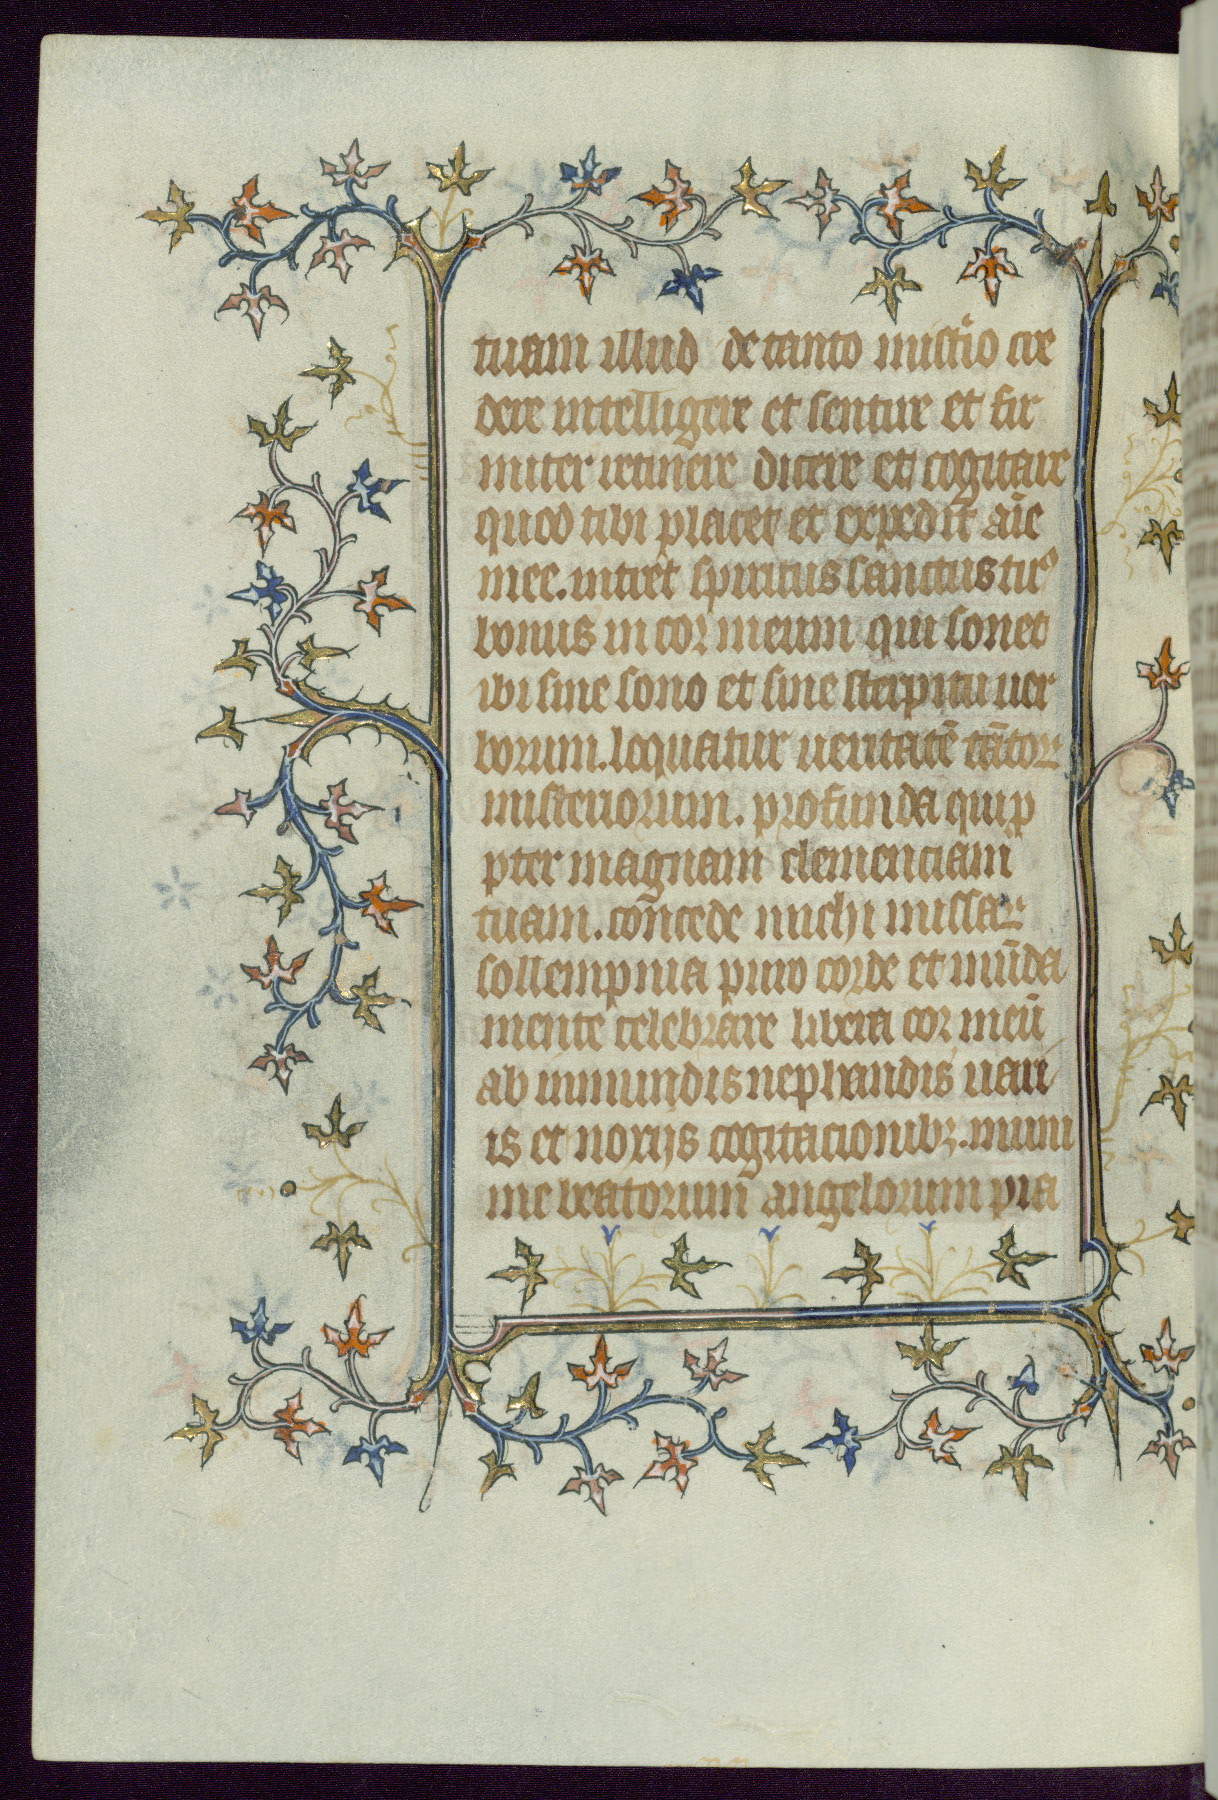 tuam illud de tanto mist̃io cre
dere intelligere et sentire et fir
miter retinere dicere et cogitare
quod tibi placet et expedit aīe
mee. intret spiritus sanctus tuꝰ
bonus in cor meum qui sonet
ibi sine sono et sine sterpitu uer
borum. loquatur ueritatē tātoꝝ
misteriorum. profunda quip
pter magnam clemenciam
tuam. cōncede michi missaꝝ
sollempnia puro corde et mūda
mente celebrare libera cor meū
ab inmundis nephandis uani
is et noxijs cogitacionibꝫ. muni
me beatorum angelorum pia